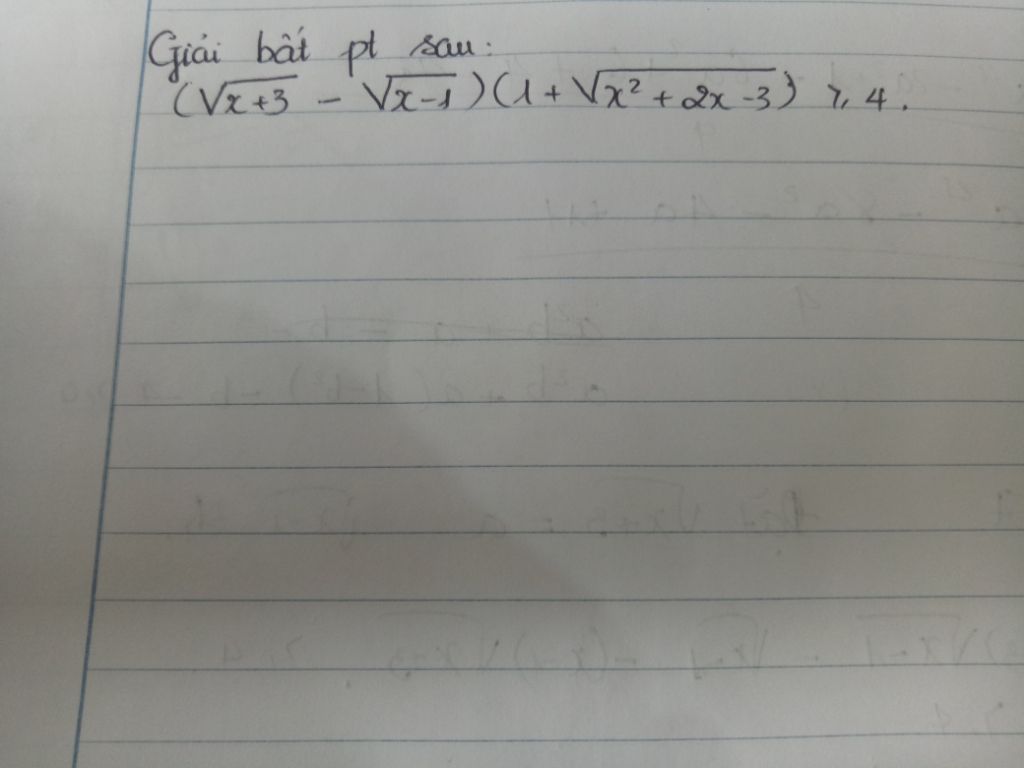 Giải bất pt sau:
(√x+3 - √x-1)(1 + √x² + 2x - 3) ⩾ 4.